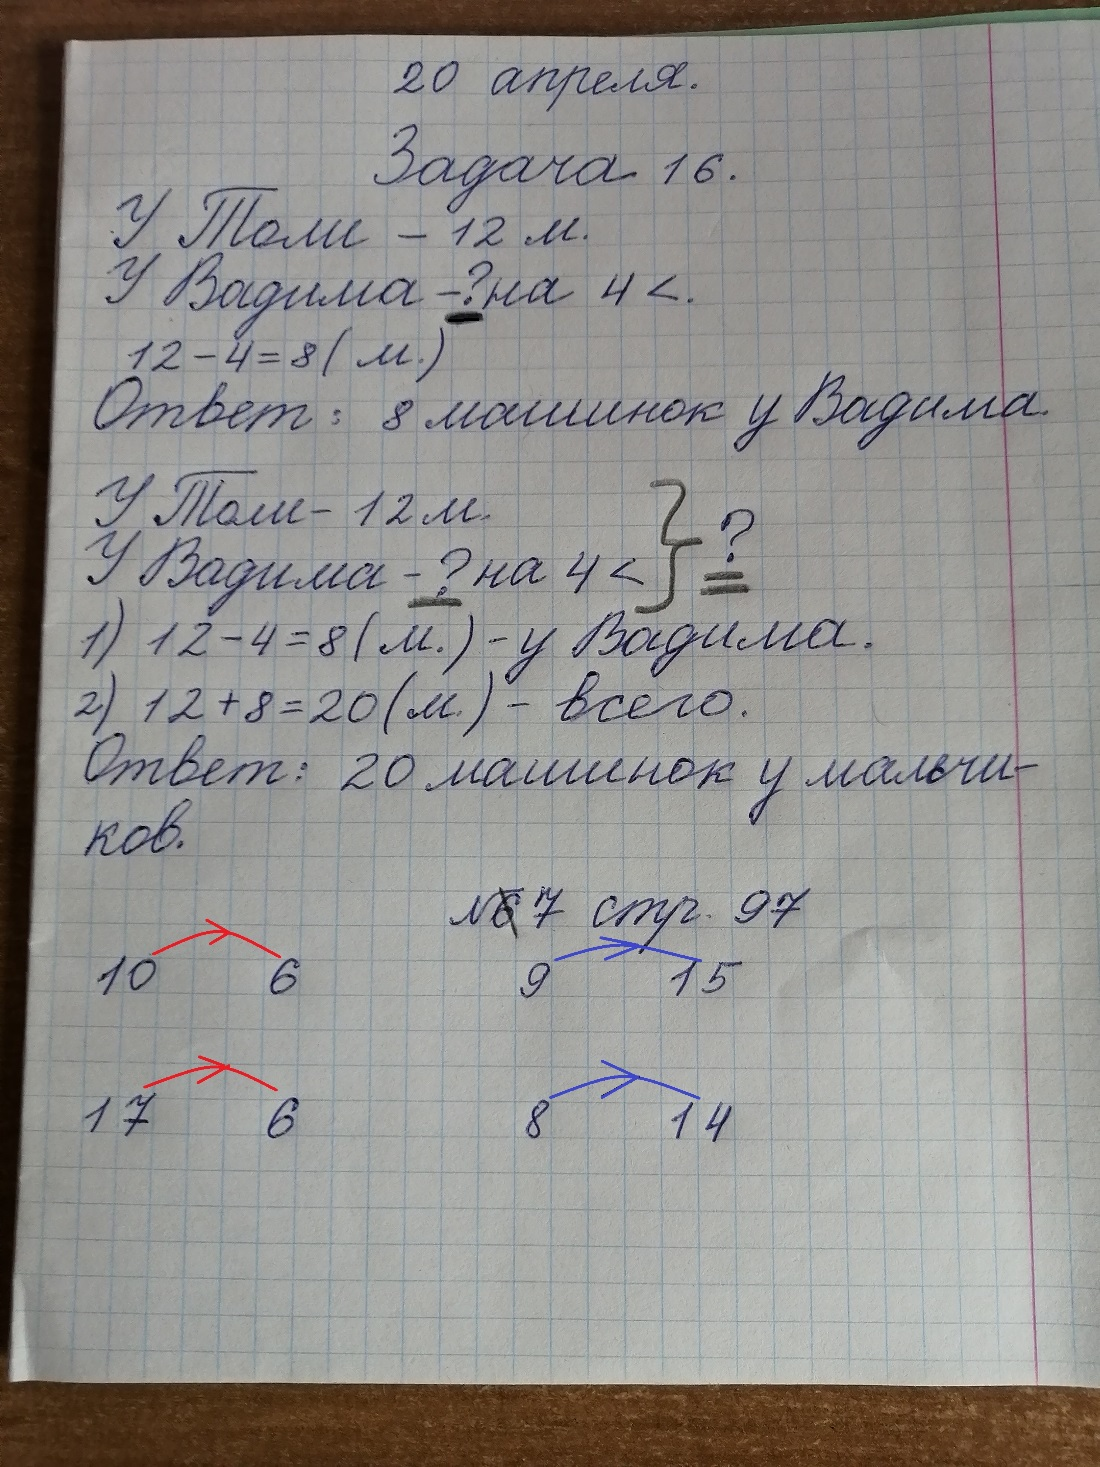 20 апреля.
Задача 16.
У Толи – 12 м.
У Вадима -? на 4 <.
12-4=8( м.)
Ответ: 8 машинок у Вадима.
У Толи- 12 м.
У Вадима -? на 4 < } ?
1) 12-4=8( м.) -у Вадима.
2) 12+8=20(м.) - всего.
Ответ: 20 машинок у мальчи-
ков.
№7 стр. 97
10 6 9 15
17 6 8 14